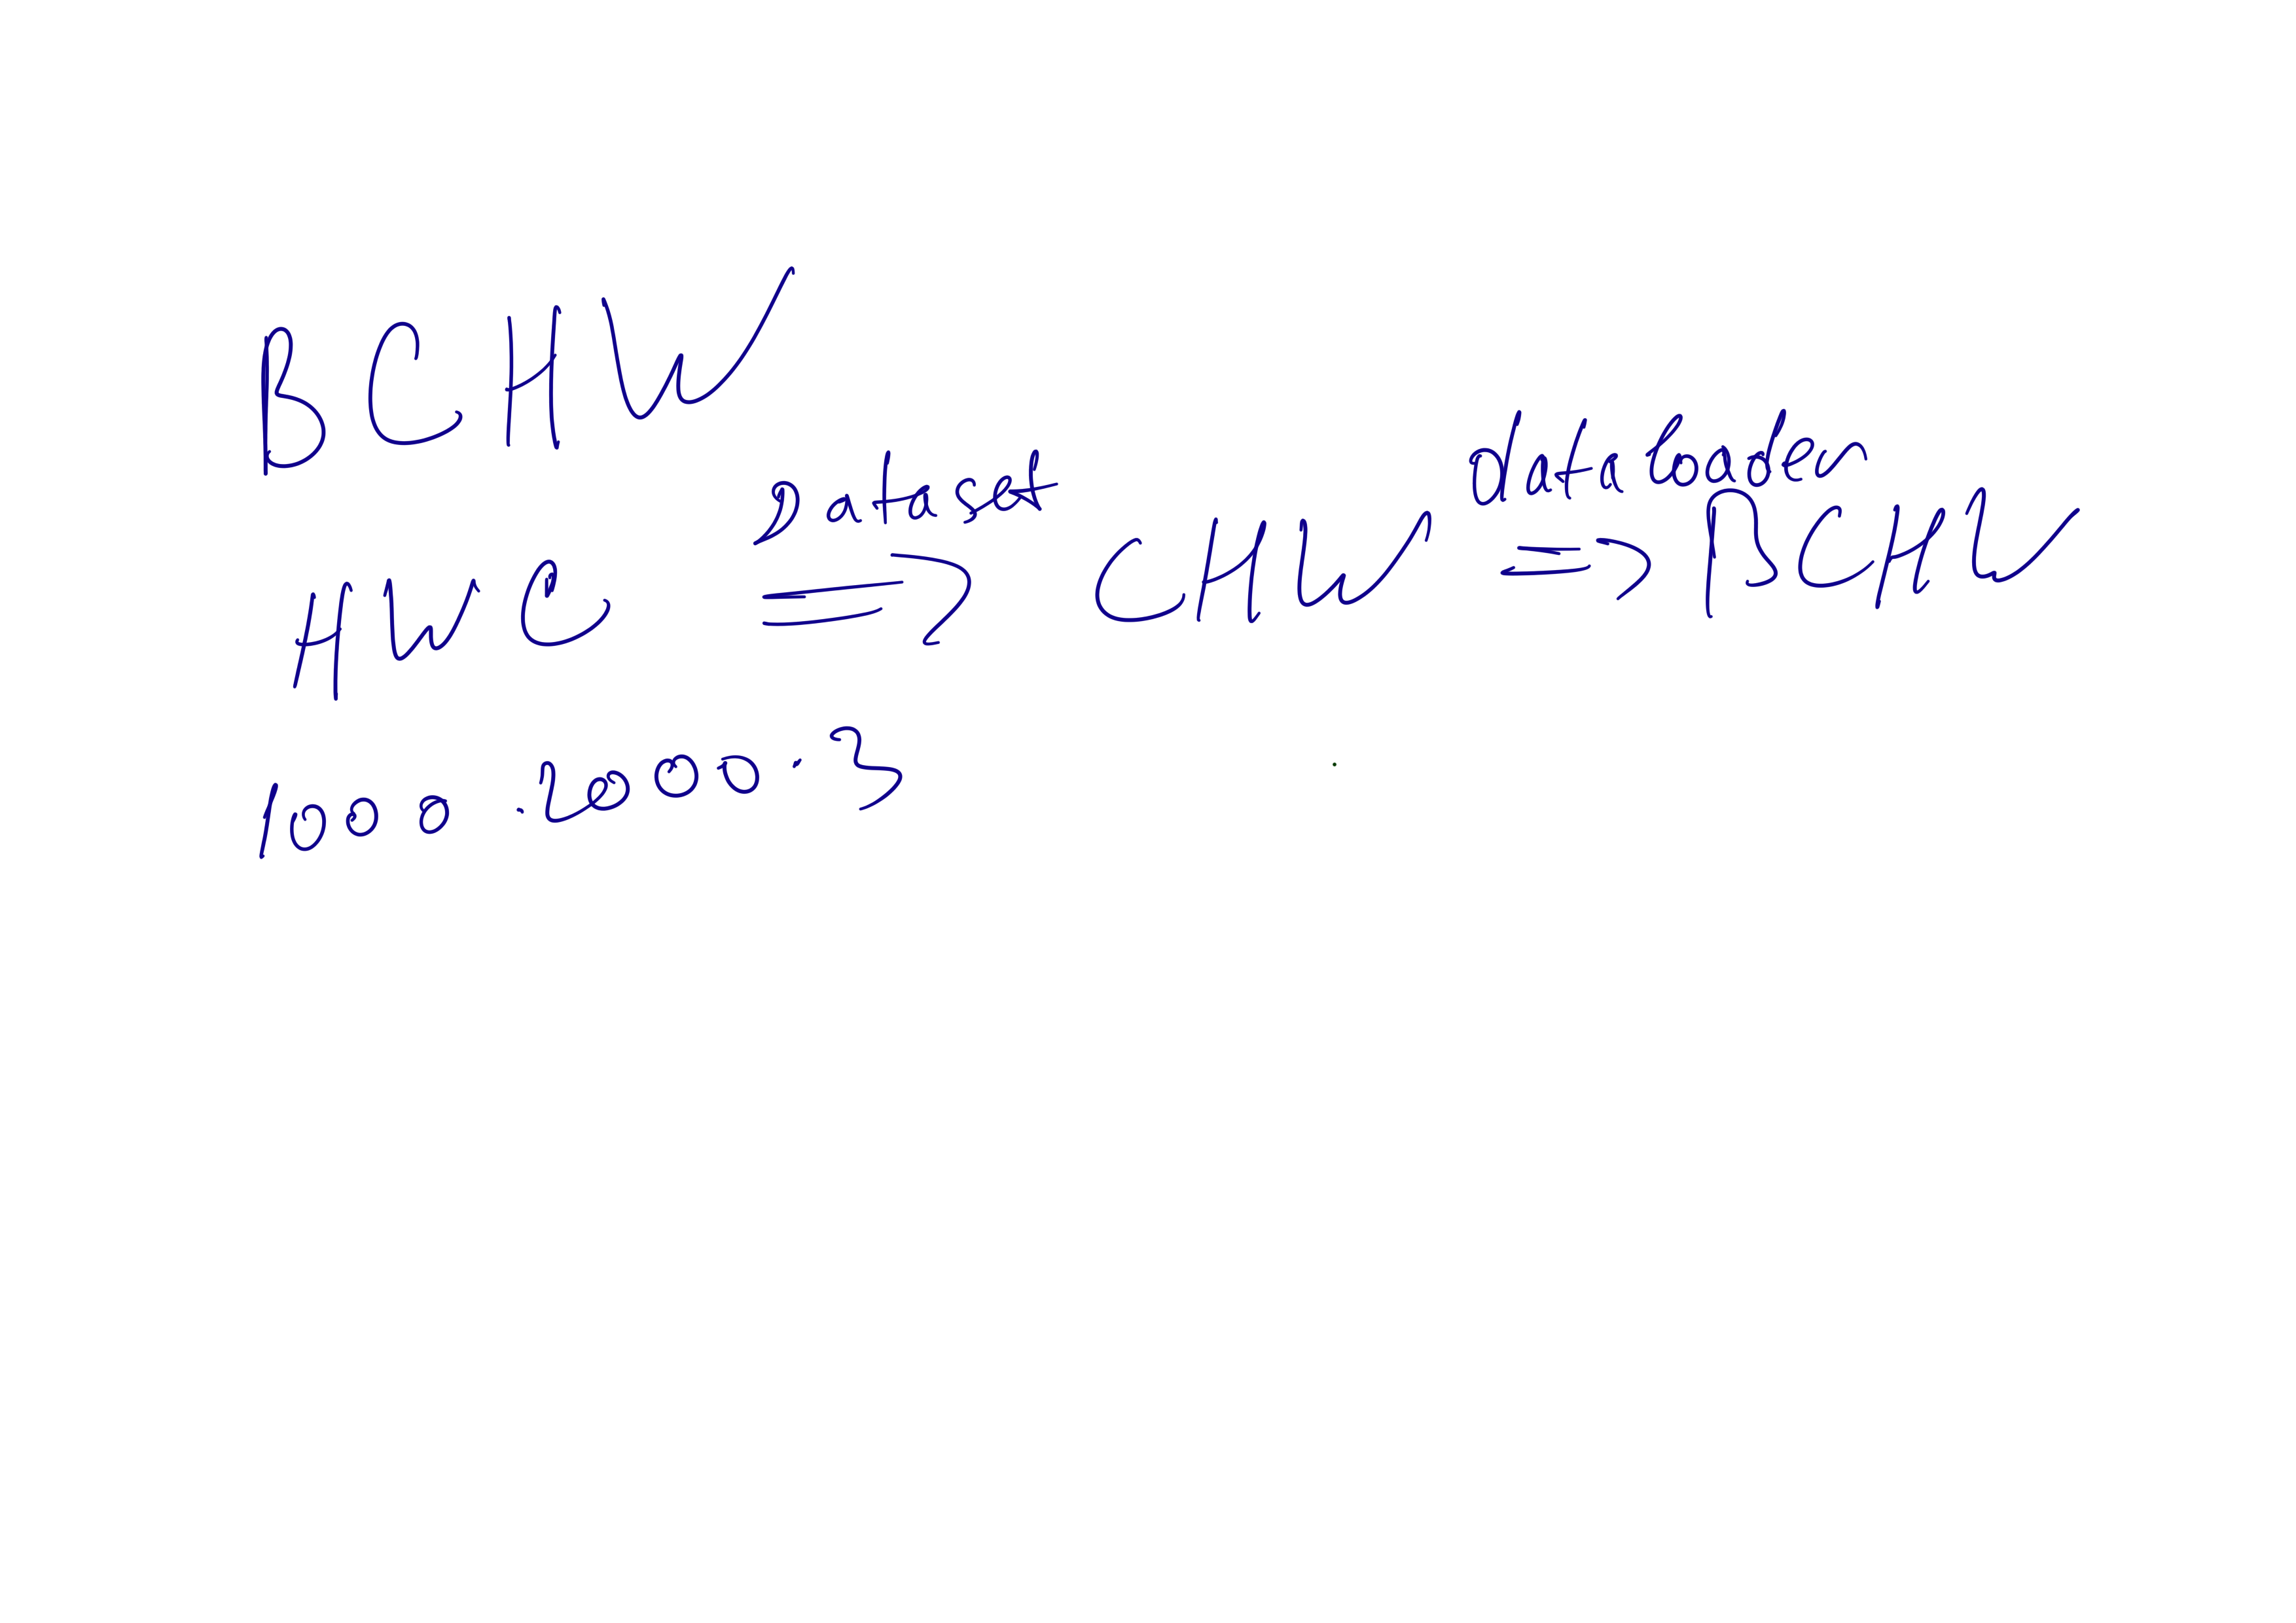 BCHW
HWC => dataset CHW => dataloader BCHW
1000 · 2000 · 3